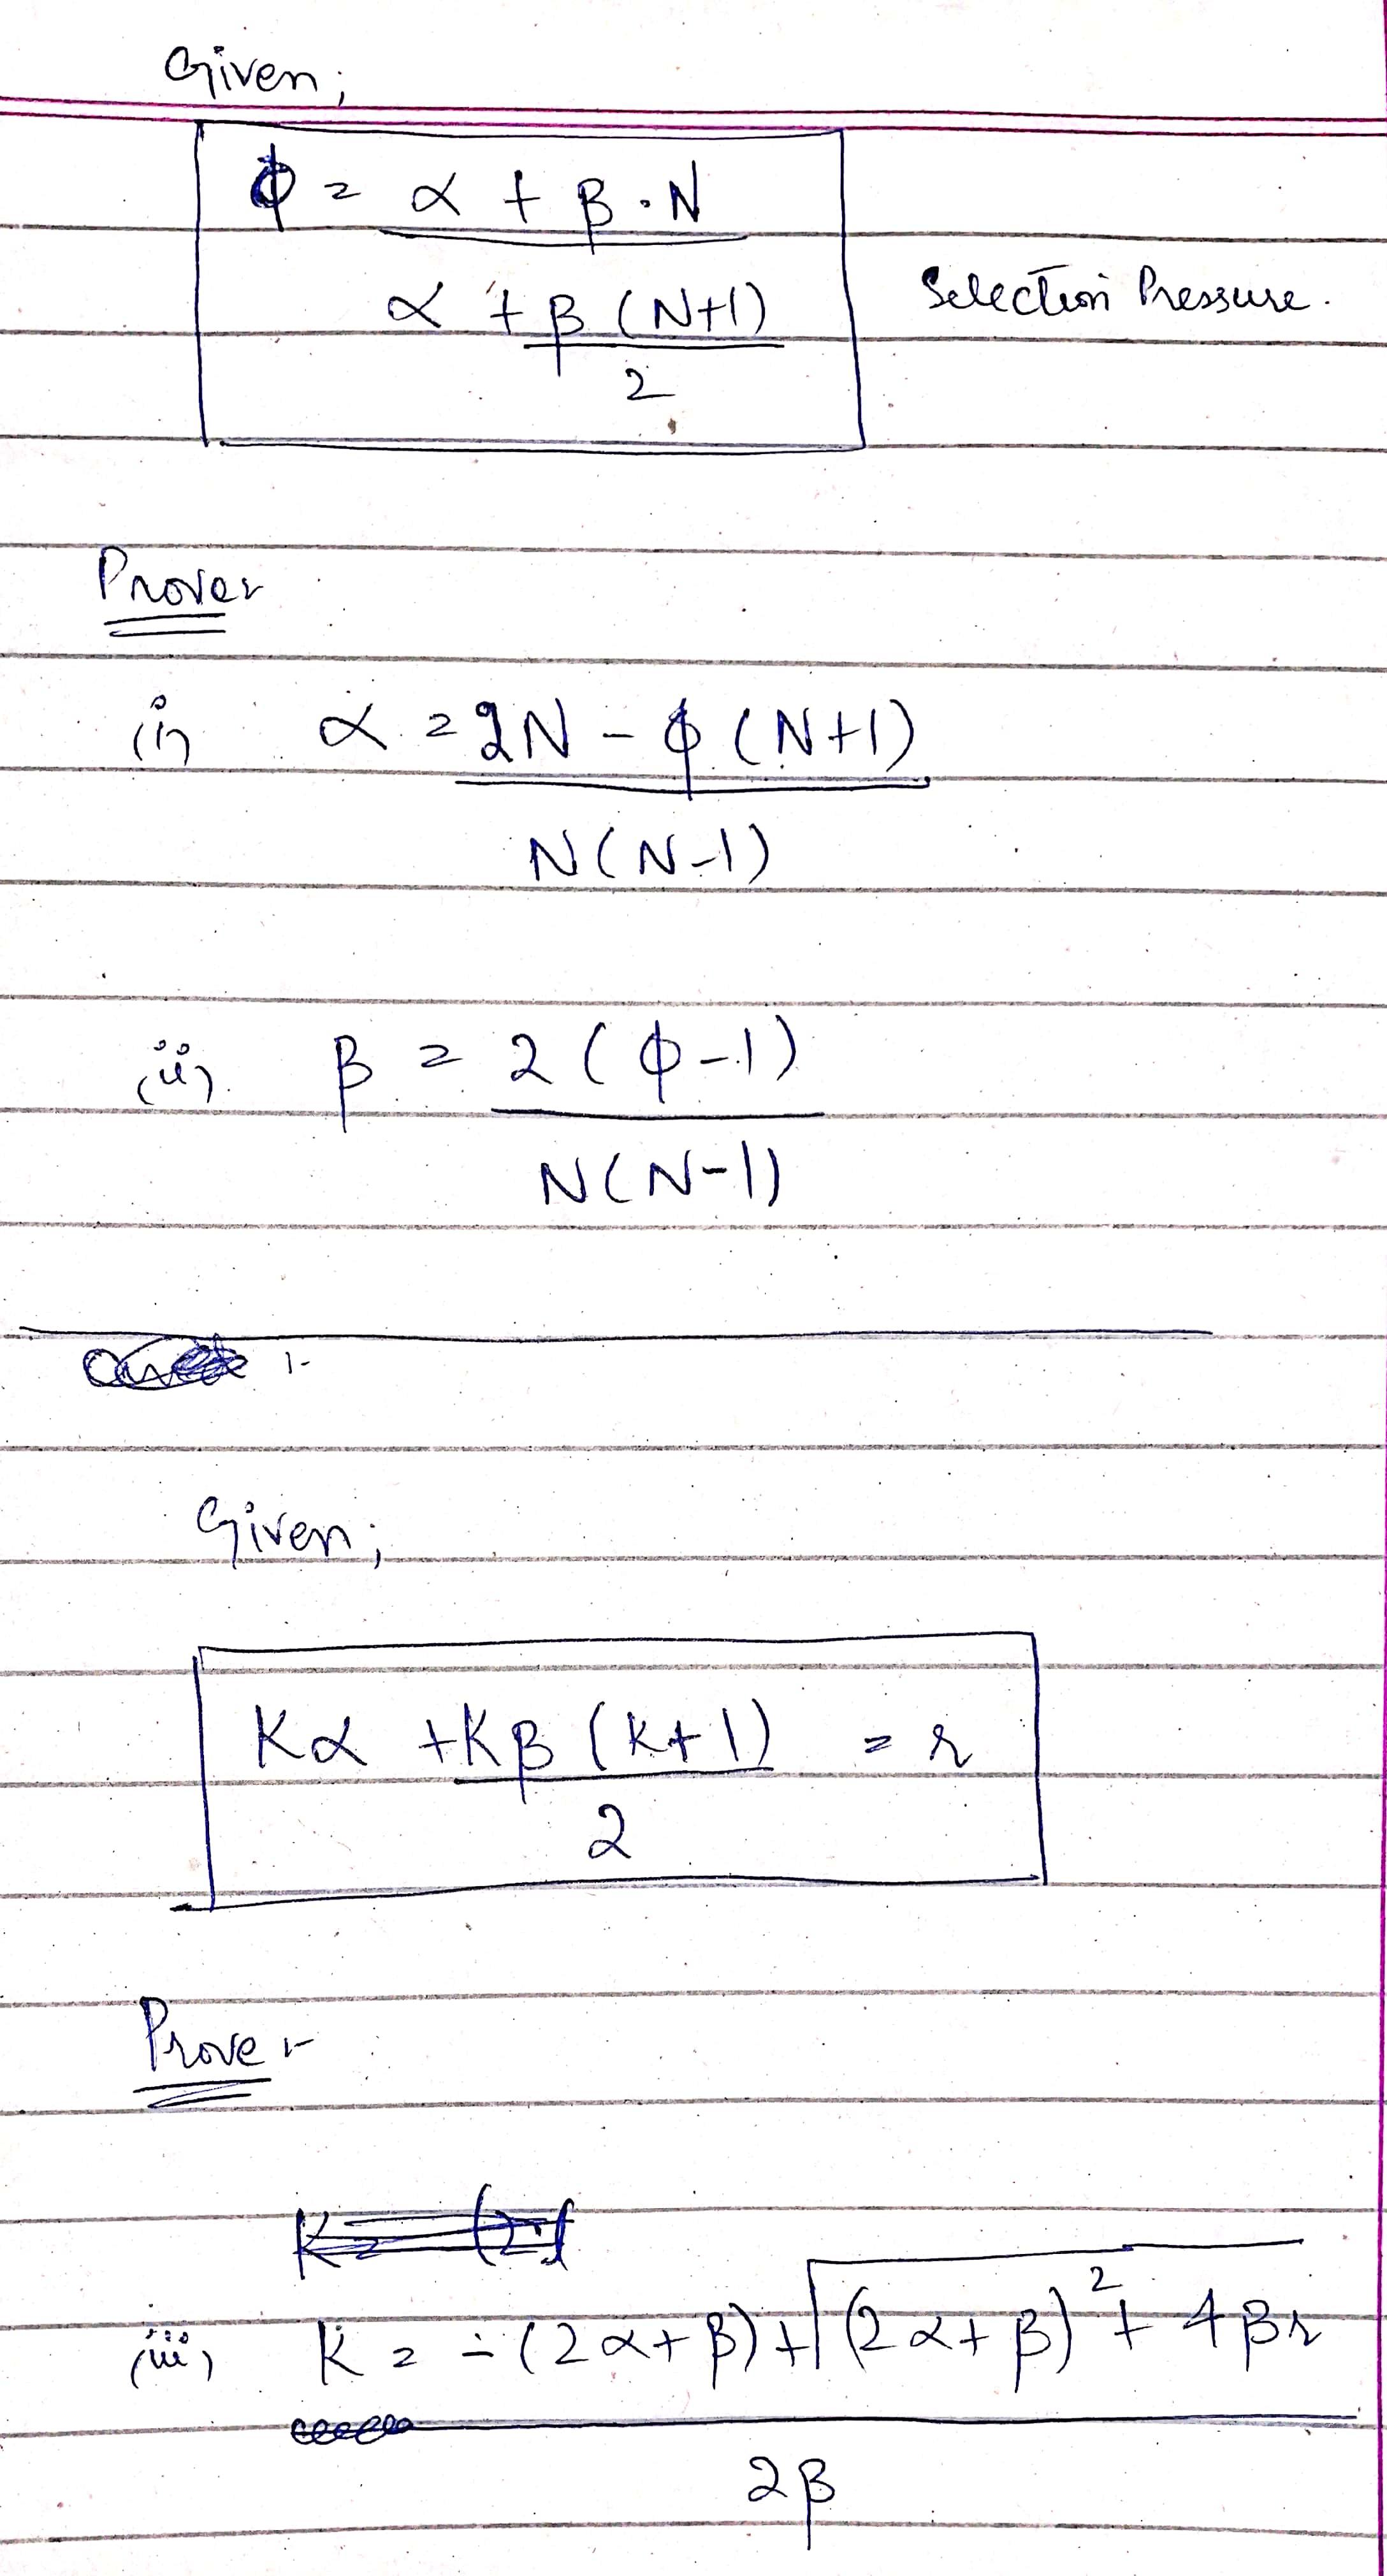 Given;
ϕ = α + β . N
α + β (N+1)
2
Selection Pressure.
Prove:-
(i) α = 2N - ϕ (N+1)
N(N-1)
(ii) β = 2 (ϕ-1)
N(N-1)
:-
Given;
Kα + Kβ (k+1) = r
2
Prove :-
(iii) K = -(2α+β) + √(2α+β)² + 4βr
2β